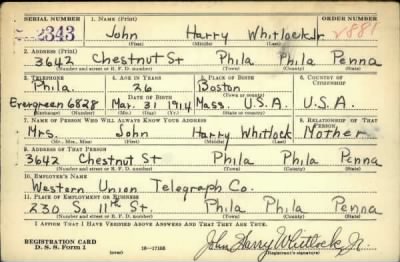 SERIAL NUMBER 1. NAME (Print) ORDER NUMBER
2343 John Harry Whitlock Jr. V881
(First) (Middle) (Last)
2. ADDRESS (Print)
3642 Chestnut St Phila Phila Penna
(Number and street or R. F. D. number) (Town) (County) (State)
3. TELEPHONE 4. AGE IN YEARS 5. PLACE OF BIRTH 6. COUNTRY OF CITIZENSHIP
Phila. 26 Boston
DATE OF BIRTH (Town or county)
Evergreen 6828 Mar. 31 1914 Mass. U.S.A. U.S.A.
(Exchange) (Number) (Mo.) (Day) (Yr.) (State or country)
7. NAME OF PERSON WHO WILL ALWAYS KNOW YOUR ADDRESS 8. RELATIONSHIP OF THAT PERSON
Mrs. John Harry Whitlock Mother
(Mr., Mrs., Miss) (First) (Middle) (Last)
9. ADDRESS OF THAT PERSON
3642 Chestnut St Phila Phila Penna
(Number and street or R. F. D. number) (Town) (County) (State)
10. EMPLOYER'S NAME
Western Union Telegraph Co.
11. PLACE OF EMPLOYMENT OR BUSINESS
230 So 11th St. Phila Phila Penna
(Number and street or R. F. D. number) (Town) (County) (State)
I AFFIRM THAT I HAVE VERIFIED ABOVE ANSWERS AND THAT THEY ARE TRUE.
REGISTRATION CARD
D. S. S. Form 1 (over) 16—17105 John Harry Whitlock, Jr.
(Registrant's signature)